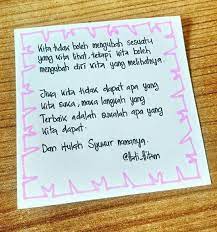 Kita tidak boleh mengubah sesuatu
yang kita lihat, tetapi kita boleh
mengubah diri kita yang melihatnya.
Jika kita tidak dapat apa yang
kita suka, maka langkah yang
Terbaik adalah sukalah apa yang
kita dapat.
Dan itulah Syukur namanya.